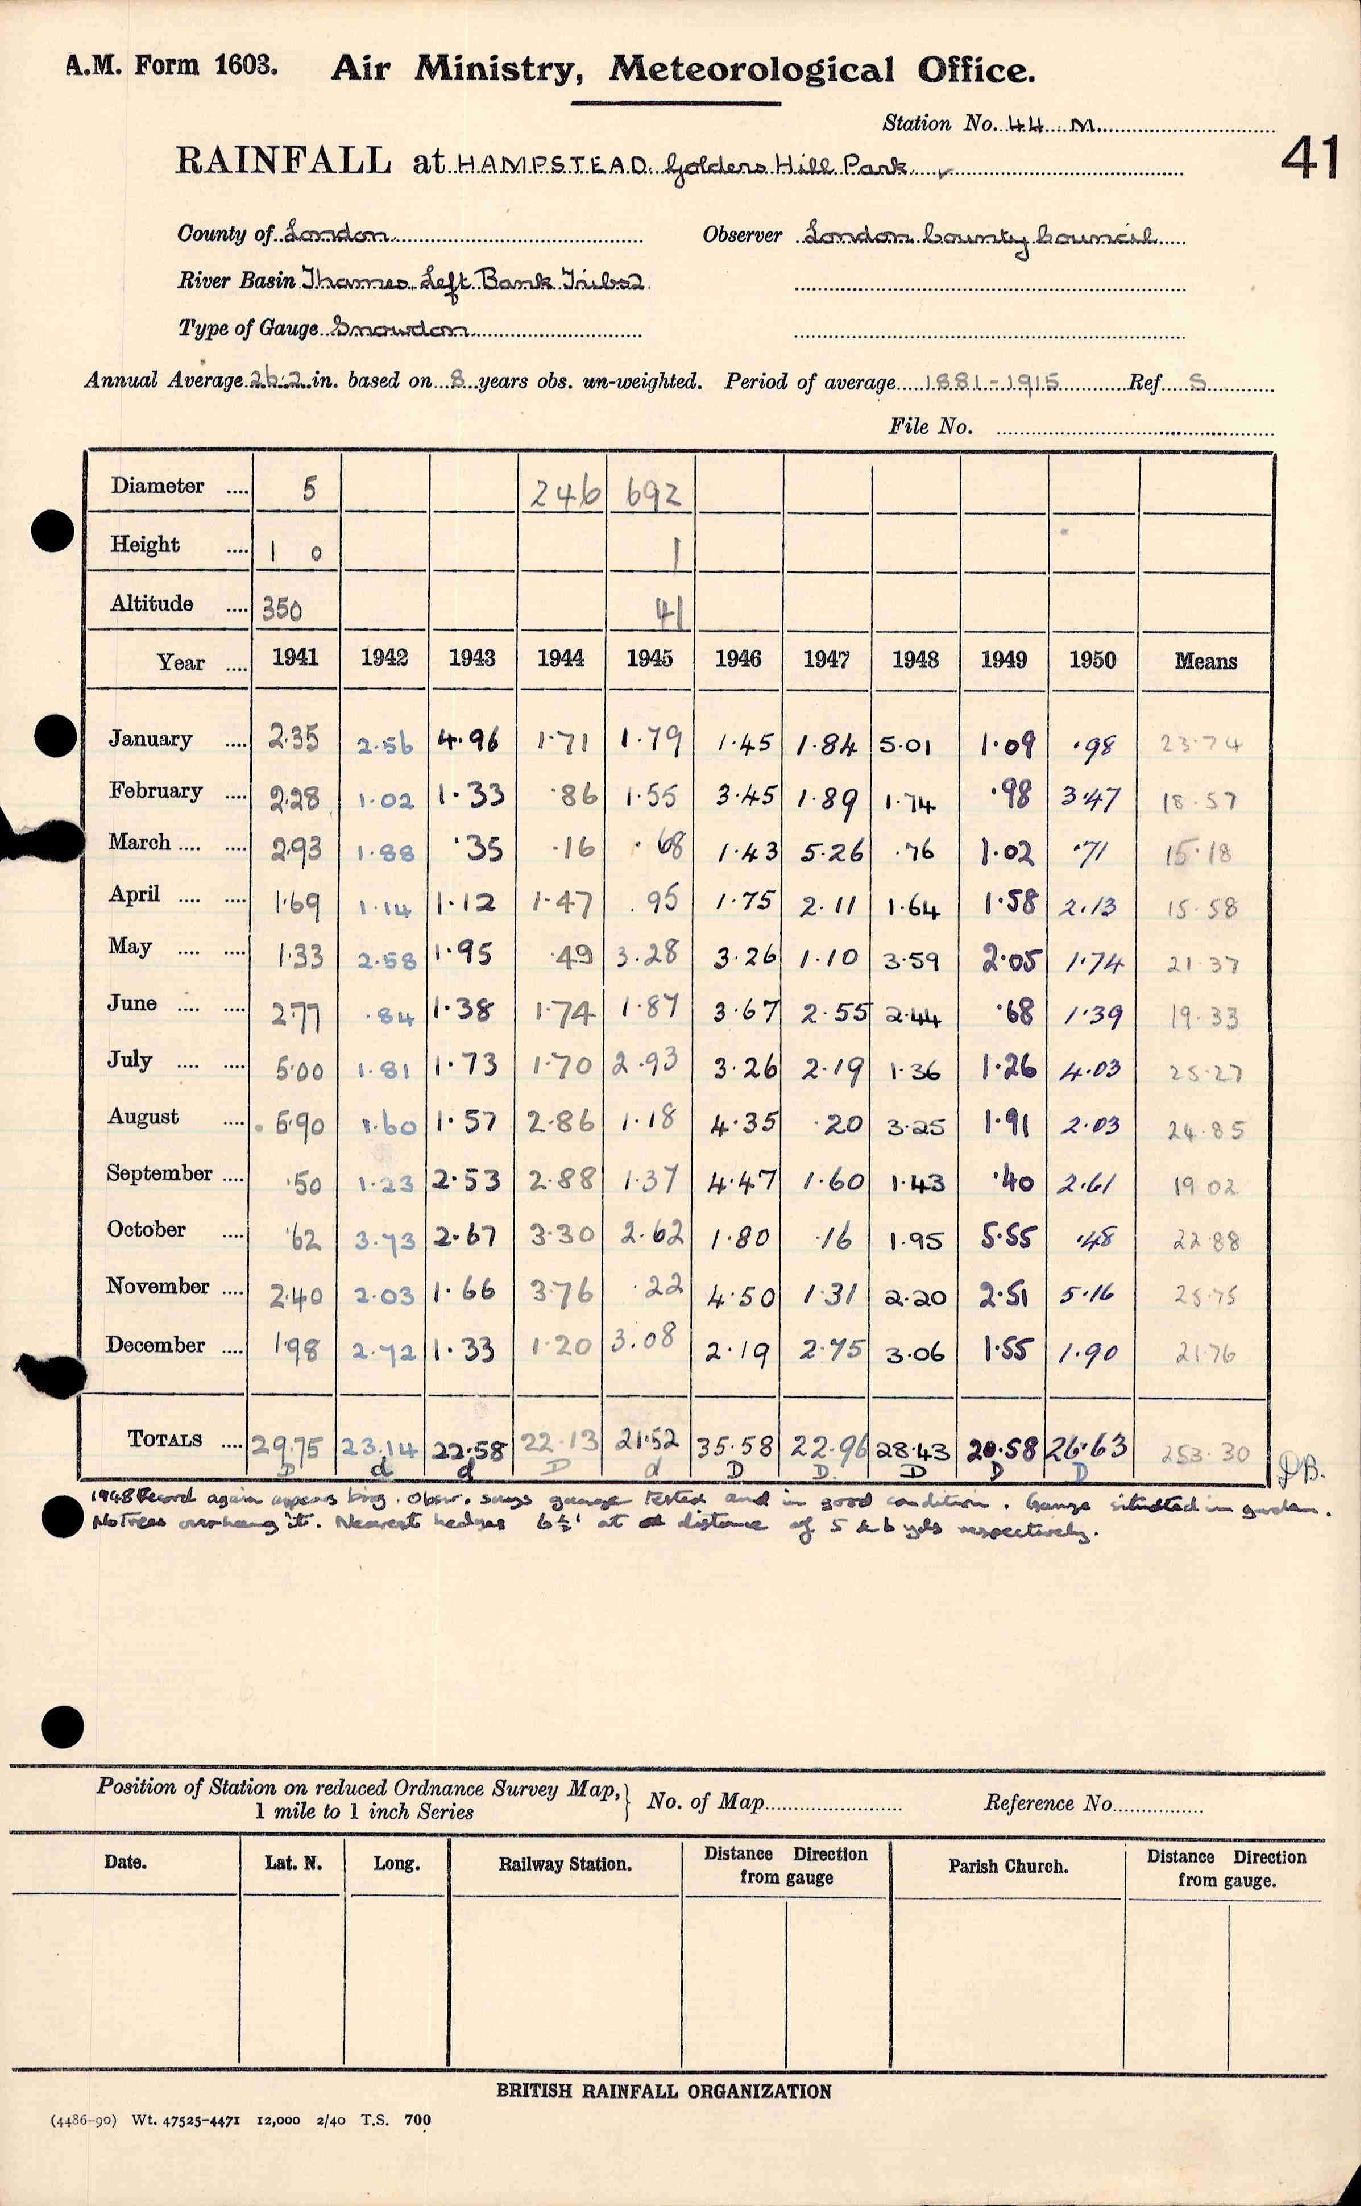 A.M. Form 1603. Air Ministry, Meteorological Office.
Station No. 44 M
41
RAINFALL at HAMPSTEAD. Golders Hill Park
County of London Observer London County Council
River Basin Thames Left Bank Tribs 2
Type of Gauge Snowdon
Annual Average 26.2 in. based on 8 years obs. un-weighted. Period of average 1881-1915 Ref S
File No.
Diameter .... 5 246 692
Height .... 1 0 1
Altitude .... 350 41
Year .... 1941 1942 1943 1944 1945 1946 1947 1948 1949 1950 Means
January .... 2.35 2.56 4.96 1.71 1.79 1.45 1.84 5.01 1.09 .98 23.74
February .... 2.28 1.02 1.33 .86 1.55 3.45 1.89 1.74 .98 3.47 18.57
March .... .... 2.93 1.88 .35 .16 .68 1.43 5.26 .76 1.02 .71 15.18
April .... .... 1.69 1.14 1.12 1.47 .95 1.75 2.11 1.64 1.58 2.13 15.58
May .... .... 1.33 2.58 1.95 .49 3.28 3.26 1.10 3.59 2.05 1.74 21.37
June .... .... 2.77 .84 1.38 1.74 1.87 3.67 2.55 2.44 .68 1.39 19.33
July .... .... 5.00 1.81 1.73 1.70 2.93 3.26 2.19 1.36 1.26 4.03 25.27
August .... 5.90 1.60 1.57 2.86 1.18 4.35 .20 3.25 1.91 2.03 24.85
September .... .50 1.23 2.53 2.88 1.37 4.47 1.60 1.43 .40 2.61 19.02
October .... .62 3.73 2.67 3.30 2.62 1.80 .16 1.95 5.55 .48 22.88
November .... 2.40 2.03 1.66 3.76 .22 4.50 1.31 2.20 2.51 5.16 25.75
December .... 1.98 2.72 1.33 1.20 3.08 2.19 2.75 3.06 1.55 1.90 21.76
TOTALS .... 29.75 23.14 22.58 22.13 21.52 35.58 22.96 28.43 20.58 26.63 253.30
D d d D d D D. D D D DB.
1948 Record again appears big. Obsr. says gauge tested and in good condition. Gauge situated in garden.
No trees overhang it. Nearest hedges 6½' at distance of 5 & 6 yds respectively.
Position of Station on reduced Ordnance Survey Map, } No. of Map Reference No
1 mile to 1 inch Series
Date. Lat. N. Long. Railway Station. Distance Direction from gauge Parish Church. Distance Direction from gauge.
BRITISH RAINFALL ORGANIZATION
(4486-90) Wt. 47525-4471 12,000 2/40 T.S. 700